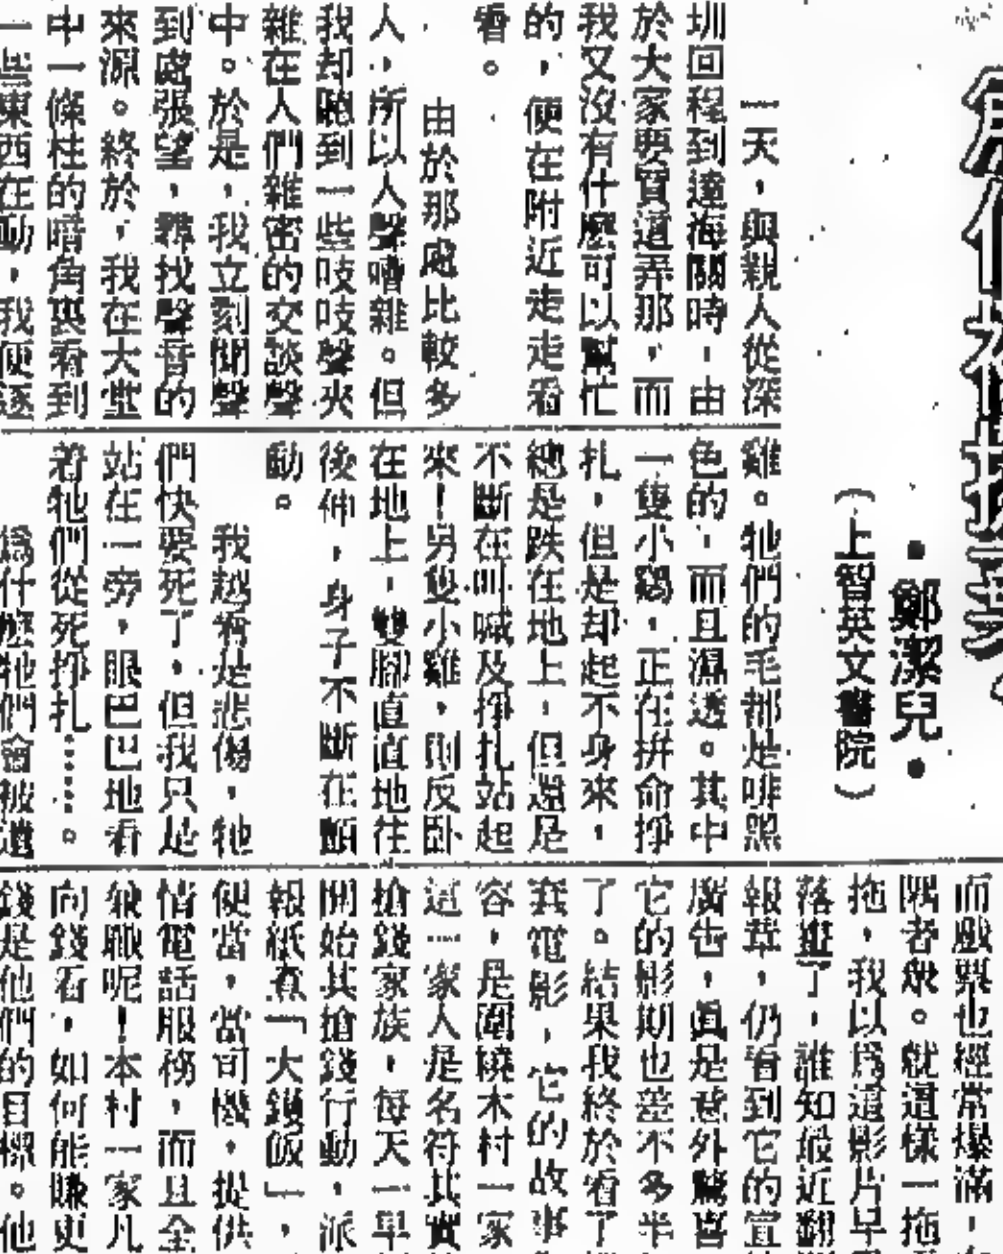 •鄭潔兒•
（上智英文書院）
一天，與親人從深
圳回程到達海關時，由
於大家要買這弄那，而
我又沒有什麼可以幫忙
的，便在附近走走看
看。
由於那處比較多
人，所以人聲嘈雜。但
我却聽到一些吱吱聲夾
雜在人們雜密的交談聲
中。於是，我立刻聞聲
到處張望，尋找聲音的
來源。終於，我在大堂
中一條柱的暗角裏看到
一些東西在動，我便逐
雞。牠們的毛都是啡黑
色的，而且濕透。其中
一隻小鷄，正在拼命掙
扎，但是却起不身來，
總是跌在地上，但還是
不斷在叫喊及掙扎站起
來！另隻小雞，則反卧
在地上，雙腳直直地往
後伸，身子不斷在顫
動。
我越看是悲傷，牠
們快要死了，但我只是
站在一旁，眼巴巴地看
着牠們從死掙扎……。
爲什麼牠們會被遺
而戲票也經常爆滿，
隅者衆。就這樣一拖
拖，我以爲這影片早
落畫了，誰知最近翻
報章，仍看到它的宣
廣告，眞是意外驚喜
它的影期也差不多半
了。結果我終於看了
套電影，它的故事
容，是圍繞木村一家
這一家人是名符其實
搶錢家族，每天一早
開始其搶錢行動，派
報紙煮「大鑊飯」，
便當，當司機，提供
情電話服務，而且全
兼職呢！本村一家凡
向錢看，如何能賺更
錢是他們的目標。他